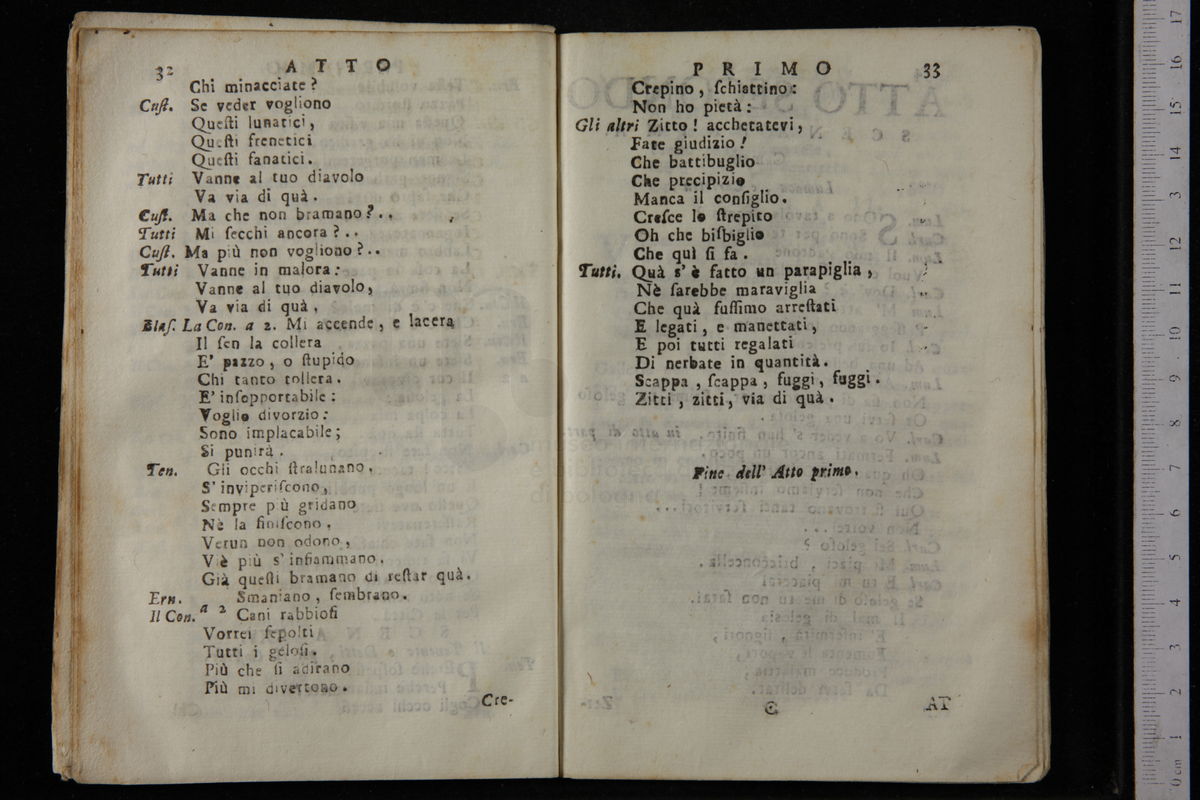 32 ATTO
Chi minacciate?
Cuſt. Se veder vogliono
Queſti lunatici,
Queſti frenetici
Queſti fanatici.
Tutti Vanne al tuo diavolo
Va via di quà.
Cuſt. Ma che non bramano?..
Tutti Mi ſecchi ancora?..
Cuſt. Ma più non vogliono?..
Tutti Vanne in malora:
Vanne al tuo diavolo,
Va via di quà.
Blaſ. La Con. a 2. Mi accende, e lacera
Il ſen la collera
E' pazzo, o ſtupido
Chi tanto tollera.
E' inſopportabile:
Voglio divorzio:
Sono implacabile;
Si punirà.
Ten. Gli occhi ſtralunano,
S' inviperiſcono,
Sempre più gridano
Nè la finiſcono,
Verun non odono,
Viè più s' infiammano,
Già queſti bramano di reſtar quà.
Ern. Smaniano, ſembrano.
Il Con. a 2 Cani rabbioſi
Vorrei ſepolti
Tutti i geloſi.
Più che ſi adirano
Più mi divertono.
Cre-
PRIMO 33
Crepino, ſchiattino:
Non ho pietà:
Gli altri Zitto! acchetatevi,
Fate giudizio!
Che battibuglio
Che precipizio
Manca il conſiglio.
Creſce lo ſtrepito
Oh che biſbiglio
Che quì ſi fa.
Tutti. Quà s' è fatto un parapiglia,
Nè ſarebbe maraviglia
Che quà fuſſimo arreſtati
E legati, e manettati,
E poi tutti regalati
Di nerbate in quantità.
Scappa, ſcappa, fuggi, fuggi.
Zitti, zitti, via di quà.
Fine dell' Atto primo.
C AT